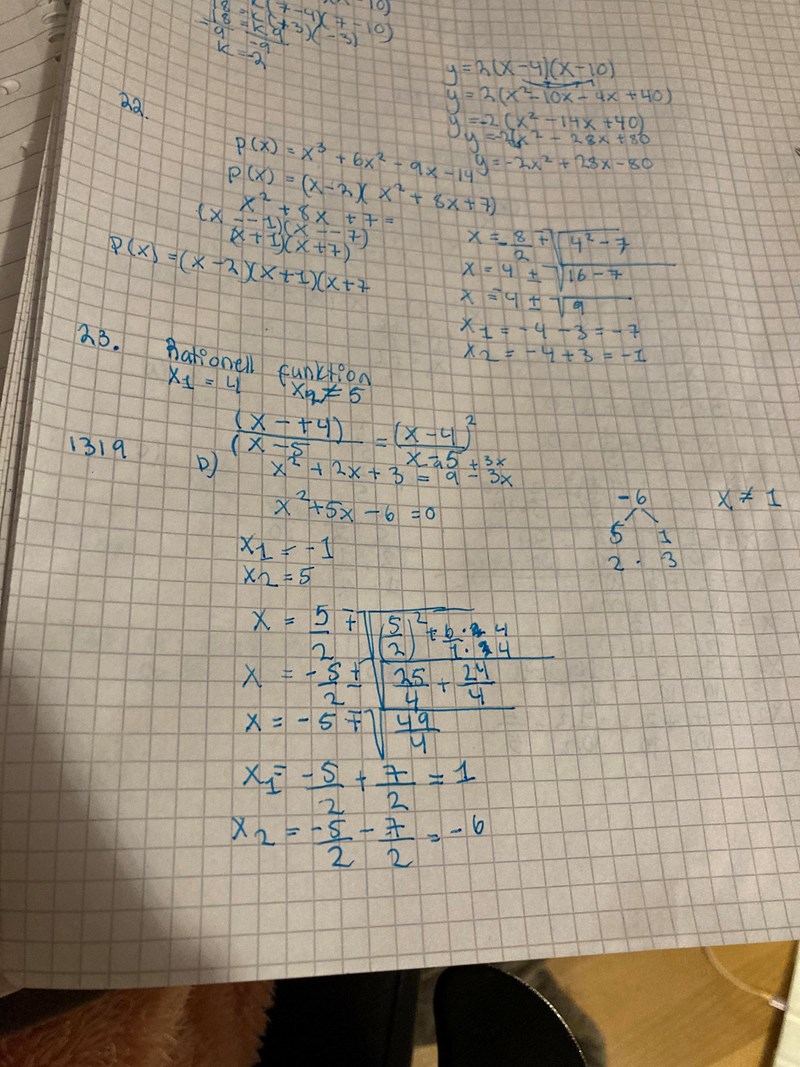 y = 2(x-4)(x-10)
y = 2(x² - 10x - 4x + 40)
y = -2(x² - 14x + 40)
y = -2x² - 28x + 80
y = -2x² + 28x - 80
k = -2
22.
p(x) = x³ + 6x² - 9x - 14
p(x) = (x-2)(x² + 8x + 7)
x² + 8x + 7 =
(x - -1)(x - -7)
(x+1)(x+7)
p(x) = (x-2)(x+1)(x+7
x = -8/2 ∓ √(4² - 7)
x = 4 ± √(16 - 7)
x = -4 ± √9
x₁ = -4 - 3 = -7
x₂ = -4 + 3 = -1
23. Rationell funktion
x₁ = 4 x₂ ≠ 5
(x - +4)/(x - 5 = (x-4)²/x-5
1319 D) x² + 2x + 3 = 9 - 3x + 3x
x² + 5x - 6 = 0
x₁ = -1
x₂ = 5
-6
5 1
2 · 3
x ≠ 1
x = 5/2 ∓ √((5/2)² + 6·4/1·4)
x = -5/2 ± √(25/4 + 24/4)
x = -5 ∓ √(49/4)
x₁ = -5/2 + 7/2 = 1
x₂ = -5/2 - 7/2 = -6